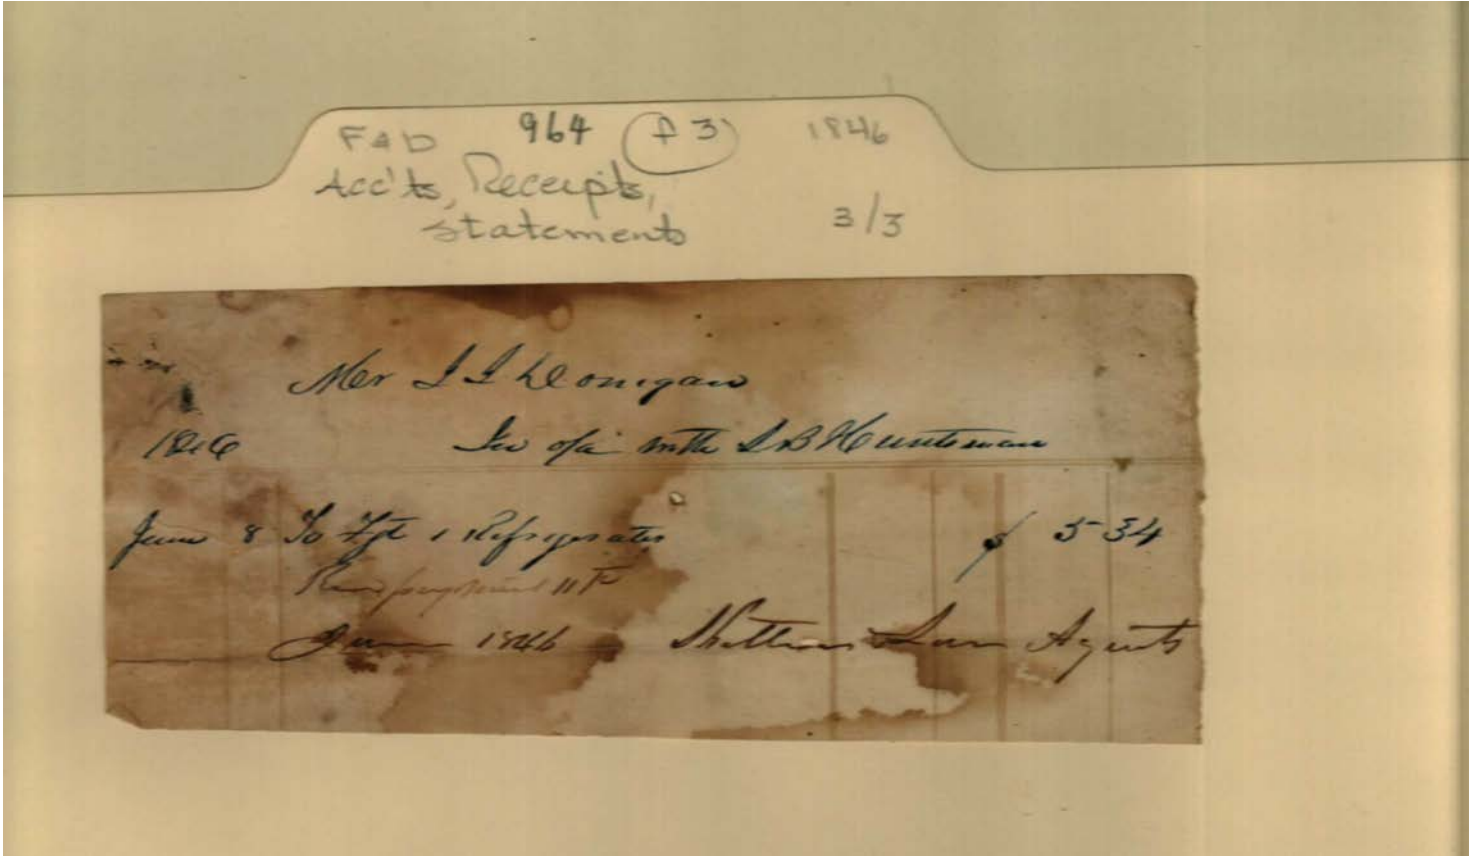 F&D 964 (f 3) 1846
Acc'ts, Receipts,
statements 3/3
Mr J J Donegan
1846 In a/c with S B Huntsman
June 8 To Fgt 1 Refrigerator $ 5 54
11th
June 1846 Agents